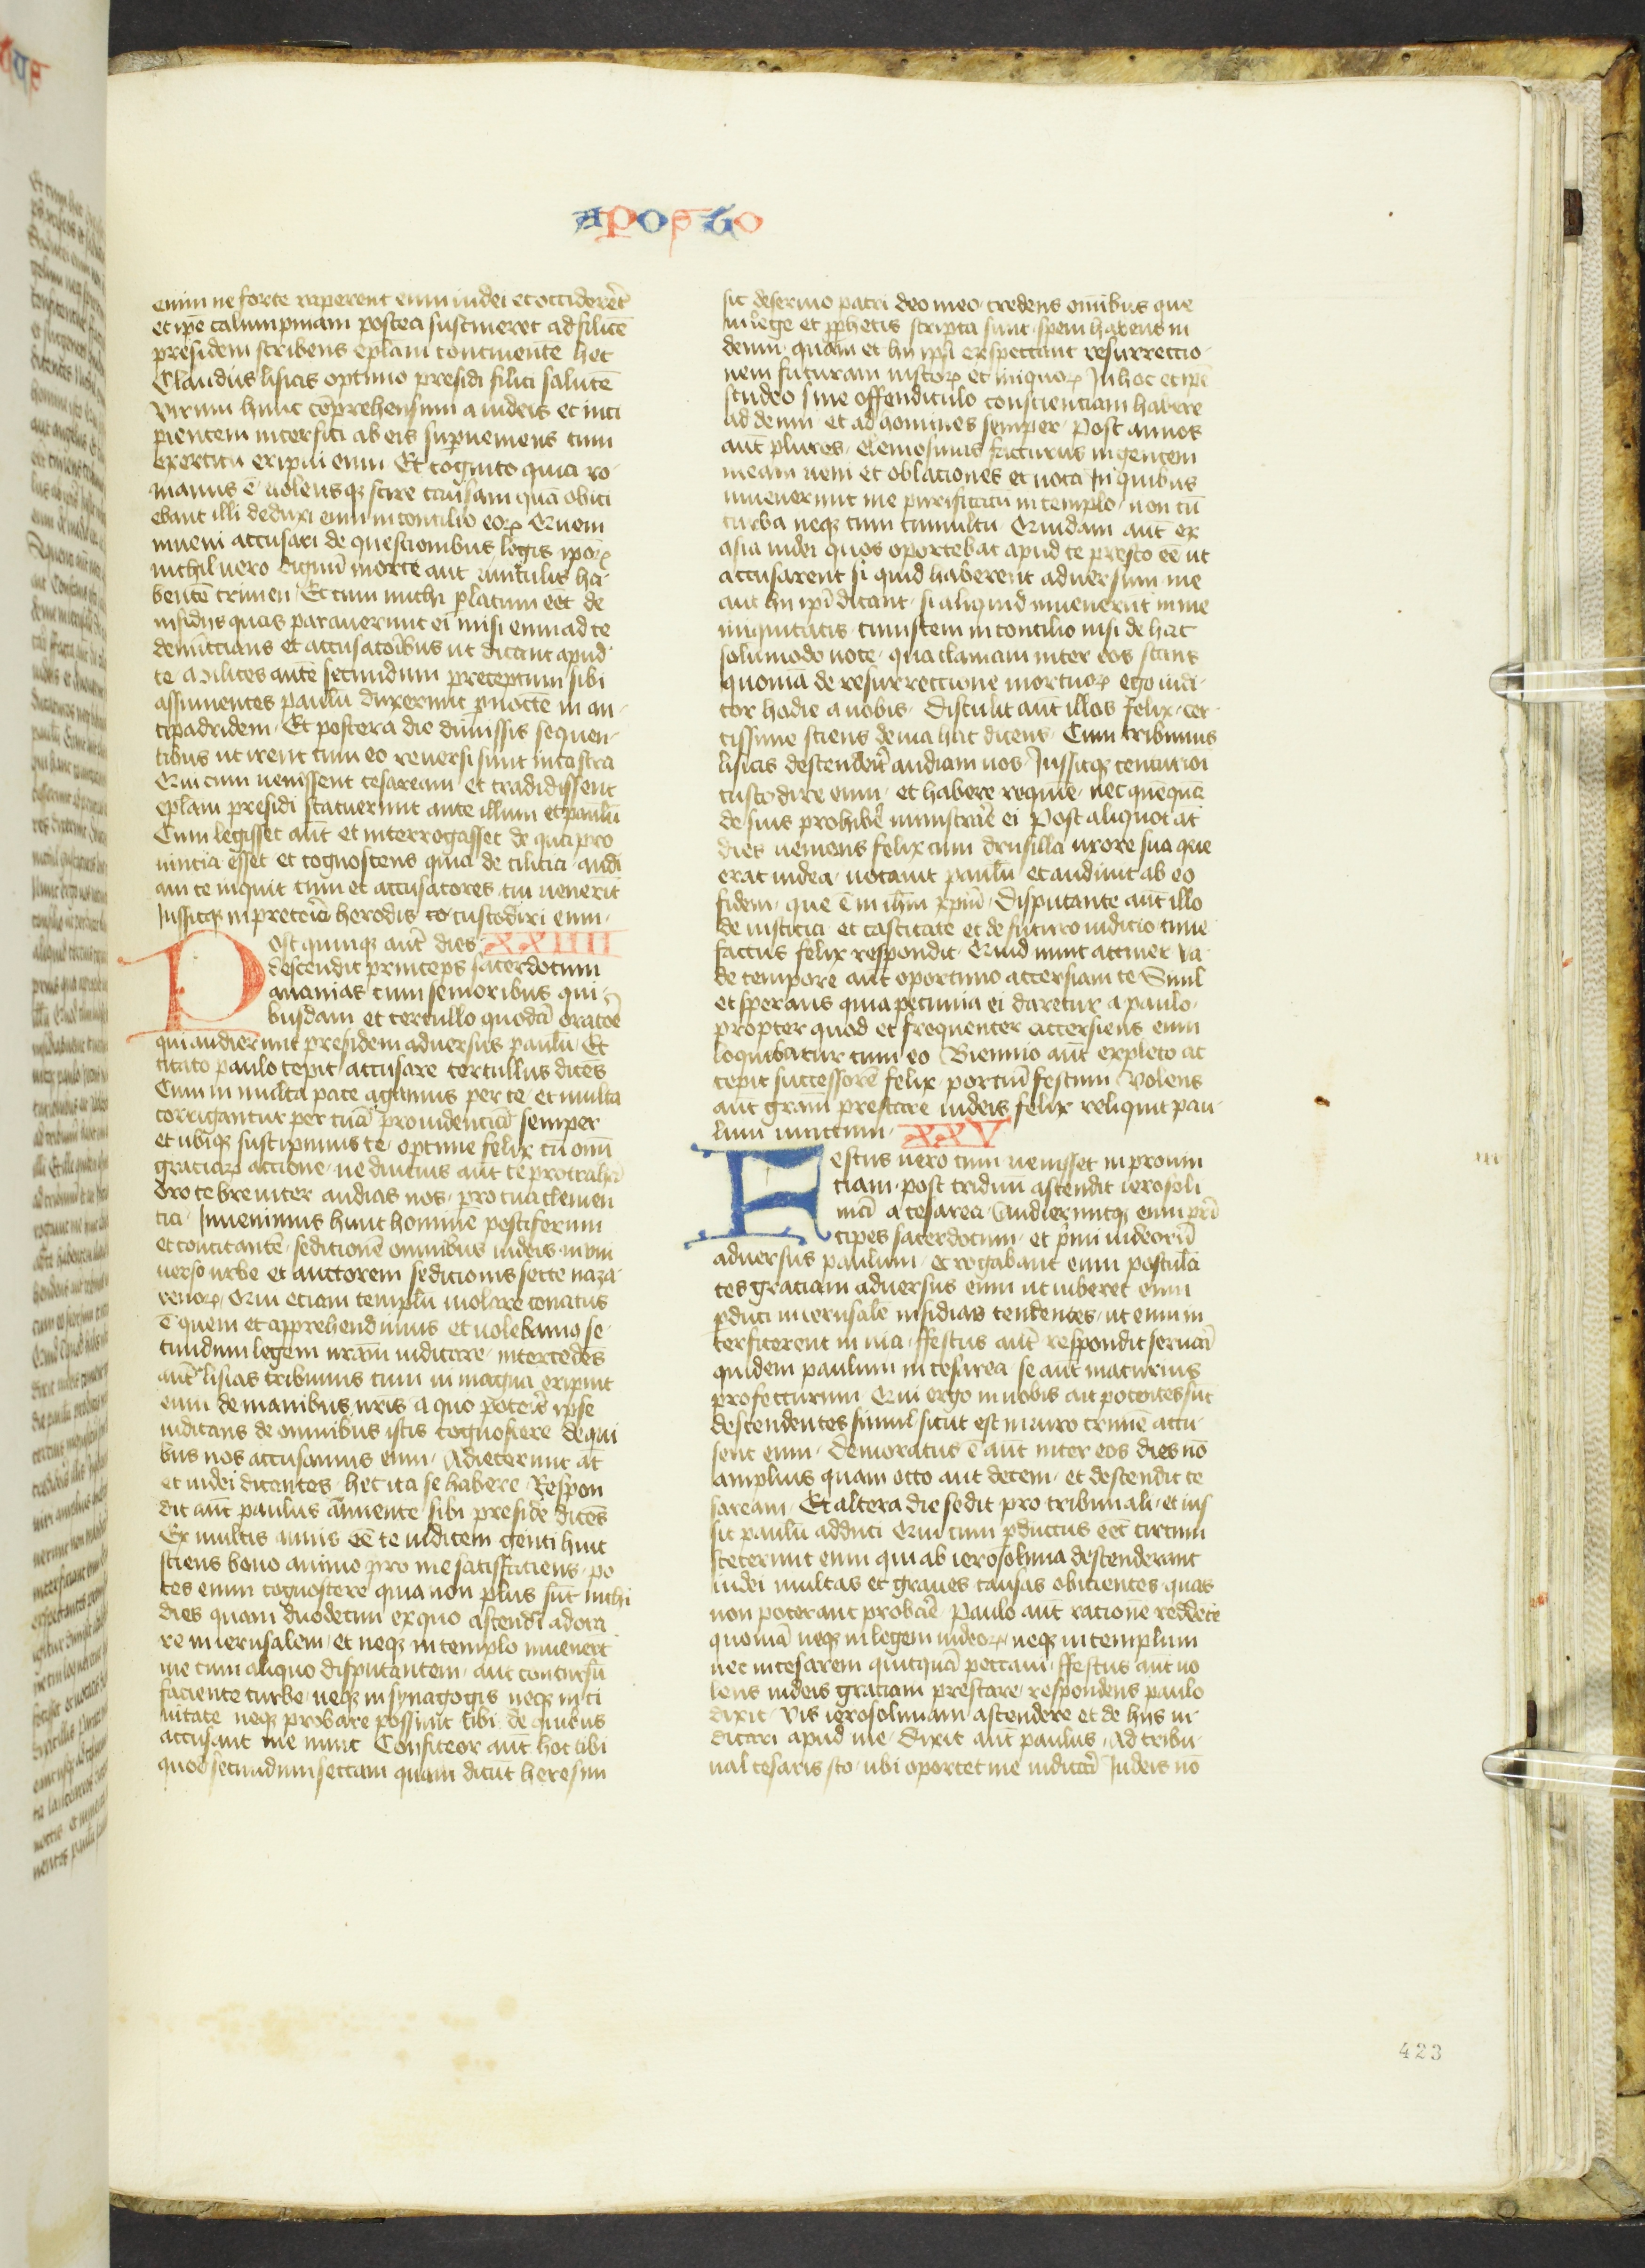 aposto
enim ne forte raperent eum iudei et occiderēt
et ipē calumpniam postea sustineret ad filicē
presidem scribens eplam continentē hec
Claudius lisias optimo presidi filici salutē
virum hunc cōprehensum a iudeis et inci
pientem interfici ab eis superueniens cum
exercitu eripui eum Et cognito quia ro-
manus ē uolensqꝫ scire causam quā obici
ebant illi deduxi eum in concilio eoꝝ Quem
inueni accusari de questionibus legis ipoꝝ
nichil uero dignū morte aut uinculis ha
bentē crimen Et cum michi platum eēt de
insidijs quas parauerunt ei misi eum ad te
denūccians et accusatoribus ut dicant apud
te Milites autē secundum preceptum sibi
assumentes paulū duxerunt p noctē in an-
tipadridem Et postera die dimissis sequen-
tibus ut irent cum eo reuersi sunt in castra
Qui cum uenissent cesaream et tradidissent
eplam presidi statuerunt ante illum et paulū
Cum legisset aut et interrogasset de qua pro
uincia esset et cognoscens quia de cilicia audi
am te inquit cum et accusatores tui uenerit
Iussitqꝫ in pretorio herodis to custodiri eum
Post quinqꝫ autē dies XXIIII
descendit princeps sacerdotum
ananias cum senioribus qui-
busdam et tertullo quodā oratoē
qui audierunt presidem aduersus paulū Et
citato paulo cepit accusare tertullus dicēs
Cum in multa pace agamus per te et multa
corrigantur per tuā prouidenciā semper
et ubiqꝫ suscipimus te optime felix cū omī
graciaꝝ accione ne diucius aut te protrahā
oro te breuiter audias nos pro tua clemen
tia Inuenimus hunc hominē pestiferum
et concitantē sedicionē omnibus iudeis in uni
uerso urbe et auctorem sedicionis secte naza-
renoꝝ Qui eciam templū uiolare conatus
ē quem et apprehendimus et uolebamꝯ se-
cundum legem nram iudicare intercedēs
autē lisias tribunus cum ui magna eripuit
eum de manibus nris a quo poteris ipse
iudicans de omnibus istis cognoscere de qui
bus nos accusamus eum Adiecerunt at
et iudei dicentes hec ita se habere Respon
dit aut paulus annuente sibi preside dicēs
Ex multis annis eē te iudicem genti huic
sciens bono animo pro me satisfaciens po
tes enim cognoscere quia non plus sūt michi
dies quam duodecim ex quo ascendi adora
re in ierusalem et neqꝫ in templo inuenerūt
me cum aliquo disputantem aut concursū
faciente turbe neqꝫ in synagogis neqꝫ in ci
uitate neqꝫ probare possunt tibi de quibus
accusant me nunc Confiteor aut hoc tibi
quod secundum sectam quam dicūt heresim
sic deseruio patri deo meo credens omībus que
in lege et pphetis scripta sunt spem habens in
deum quam et hij ipī exspectant resurrectio-
nem futuram iustoꝝ et iniquoꝝ In hoc et ipē
studeo sine offendiculo conscienciam habere
ad deum et ad homines semper Post annos
aut plures elemosinas facturus in gentem
meam ueni et oblaciones et uota In quibus
inuenerunt me purificatū in templo non cū
turba neqꝫ cum tumultu Quidam aut ex
asia iudei quos oportebat apud te presto eē ut
accusarent si quid haberent aduersum me
aut hij ipī dicant si aliquid inuenerūt in me
iniquitatis cum stem in concilio nisi de hac
solumodo uoce qua clamaui inter eos stans
quoniā de resurrectione mortuoꝝ ego iudi-
cor hodie a uobis Distulit aut illos felix cer-
tissime sciens de uia hac dicens Cum tribunus
lisias descenderit audiam uos Iussitqꝫ centurioi
custodire eum et habere requiē nec quēquā
de suis prohibē ministrare ei Post aliquot at
dies ueniens felix cum drusilla uxore sua que
erat iudea uocauit paulū et audiuit ab eo
fidem que ē in ihm xpm Disputante aut illo
de iusticia et castitate et de futuro iudicio time
factus felix respondit Quid nunc attinet ua
de tempore aut oportuno accersiam te Simul
et sperans quia pecunia ei daretur a paulo
propter quod et frequenter accersiens eum
loquebatur cum eo Biennio aut expleto ac
cepit successorē felix porciū festum Volens
aut gram prestare iudeis felix reliquit pau-
lum uinctum XXV
Festus uero cum uenisset in prouin
ciam post triduū ascendit ierosoli
mā a cesarea Audieruntqꝫ eum pri
cipes sacerdotum et primi iudeorū
aduersus paulum et rogabant eum postulā
tes graciam aduersus eum ut iuberet eum
pduci in ierusalē insidias tendentes ut eum in
terficerent in uia ffestus aut respondit seruari
quidem paulum in cesarea se aut maturius
profecturum Qui ergo in uobis ait potentes sūt
descendentes simul si aut est in uiro crimē accu-
sent eum Demoratus ē aut inter eos dies nō
amplius quam octo aut decem et descendit ce
saream Et altera die sedit pro tribunali et ius
sit paulū adduci Qui cum pductus eēt circum
steterunt eum qui ab ierosolima descenderant
iudei multas et graues causas obicientes quas
non poterant probare Paulo aut racionē reddēte
quoniā neqꝫ in legem iudeoꝝ neqꝫ in templum
nec in cesarem quicquā peccaui ffestus aut uo
lens iudeis graciam prestare respondens paulo
dixit vis ierosolimam ascendere et de hijs iu-
dicari apud me Dixit aut paulus Ad tribu-
nal cesaris sto ubi oportet me iudicari Iudeis nō
423